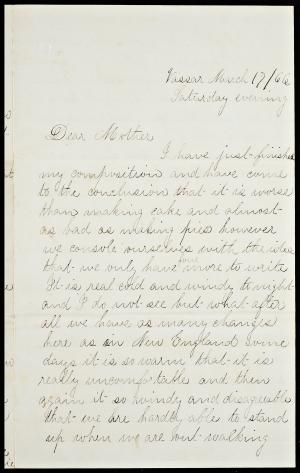 Vassar March 17/66
Saturday evening
Dear Mother
I have just finished
my composition and have come
to the conclusion that it is worse
than making cake and almost
as bad as making pies however
we console ourselves with the idea
that we only have four more to write
It is real cold and windy to night
and I do not see but what after
all we have as many changes
here as in New England some
days it is so warm that it is
really uncomfortable and then
again it so windy and disagreeable
that we are hardly able to stand
up when we are out walking